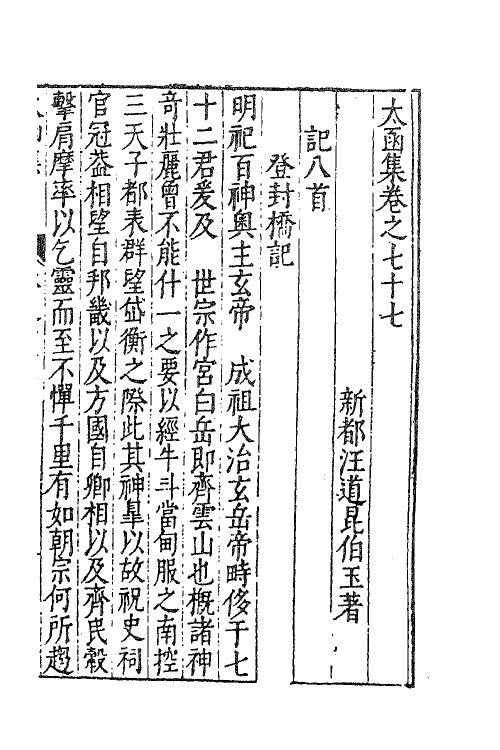 太函集卷之七十七
新都汪道昆伯玉著
記八首
登封橋記
明祀百神輿主玄帝 成祖大治玄岳帝時侈于七
十二君爰及 世宗作宮白岳即齊雲山也概諸神
竒壯麗曾不能什一之要以經牛斗當甸服之南控
三天子都表群望岱衡之際此其神皐以故祝史祠
官冠葢相望自邦畿以及方國自卿相以及齊民轂
擊肩摩率以乞靈而至不憚千里有如朝宗何所趨